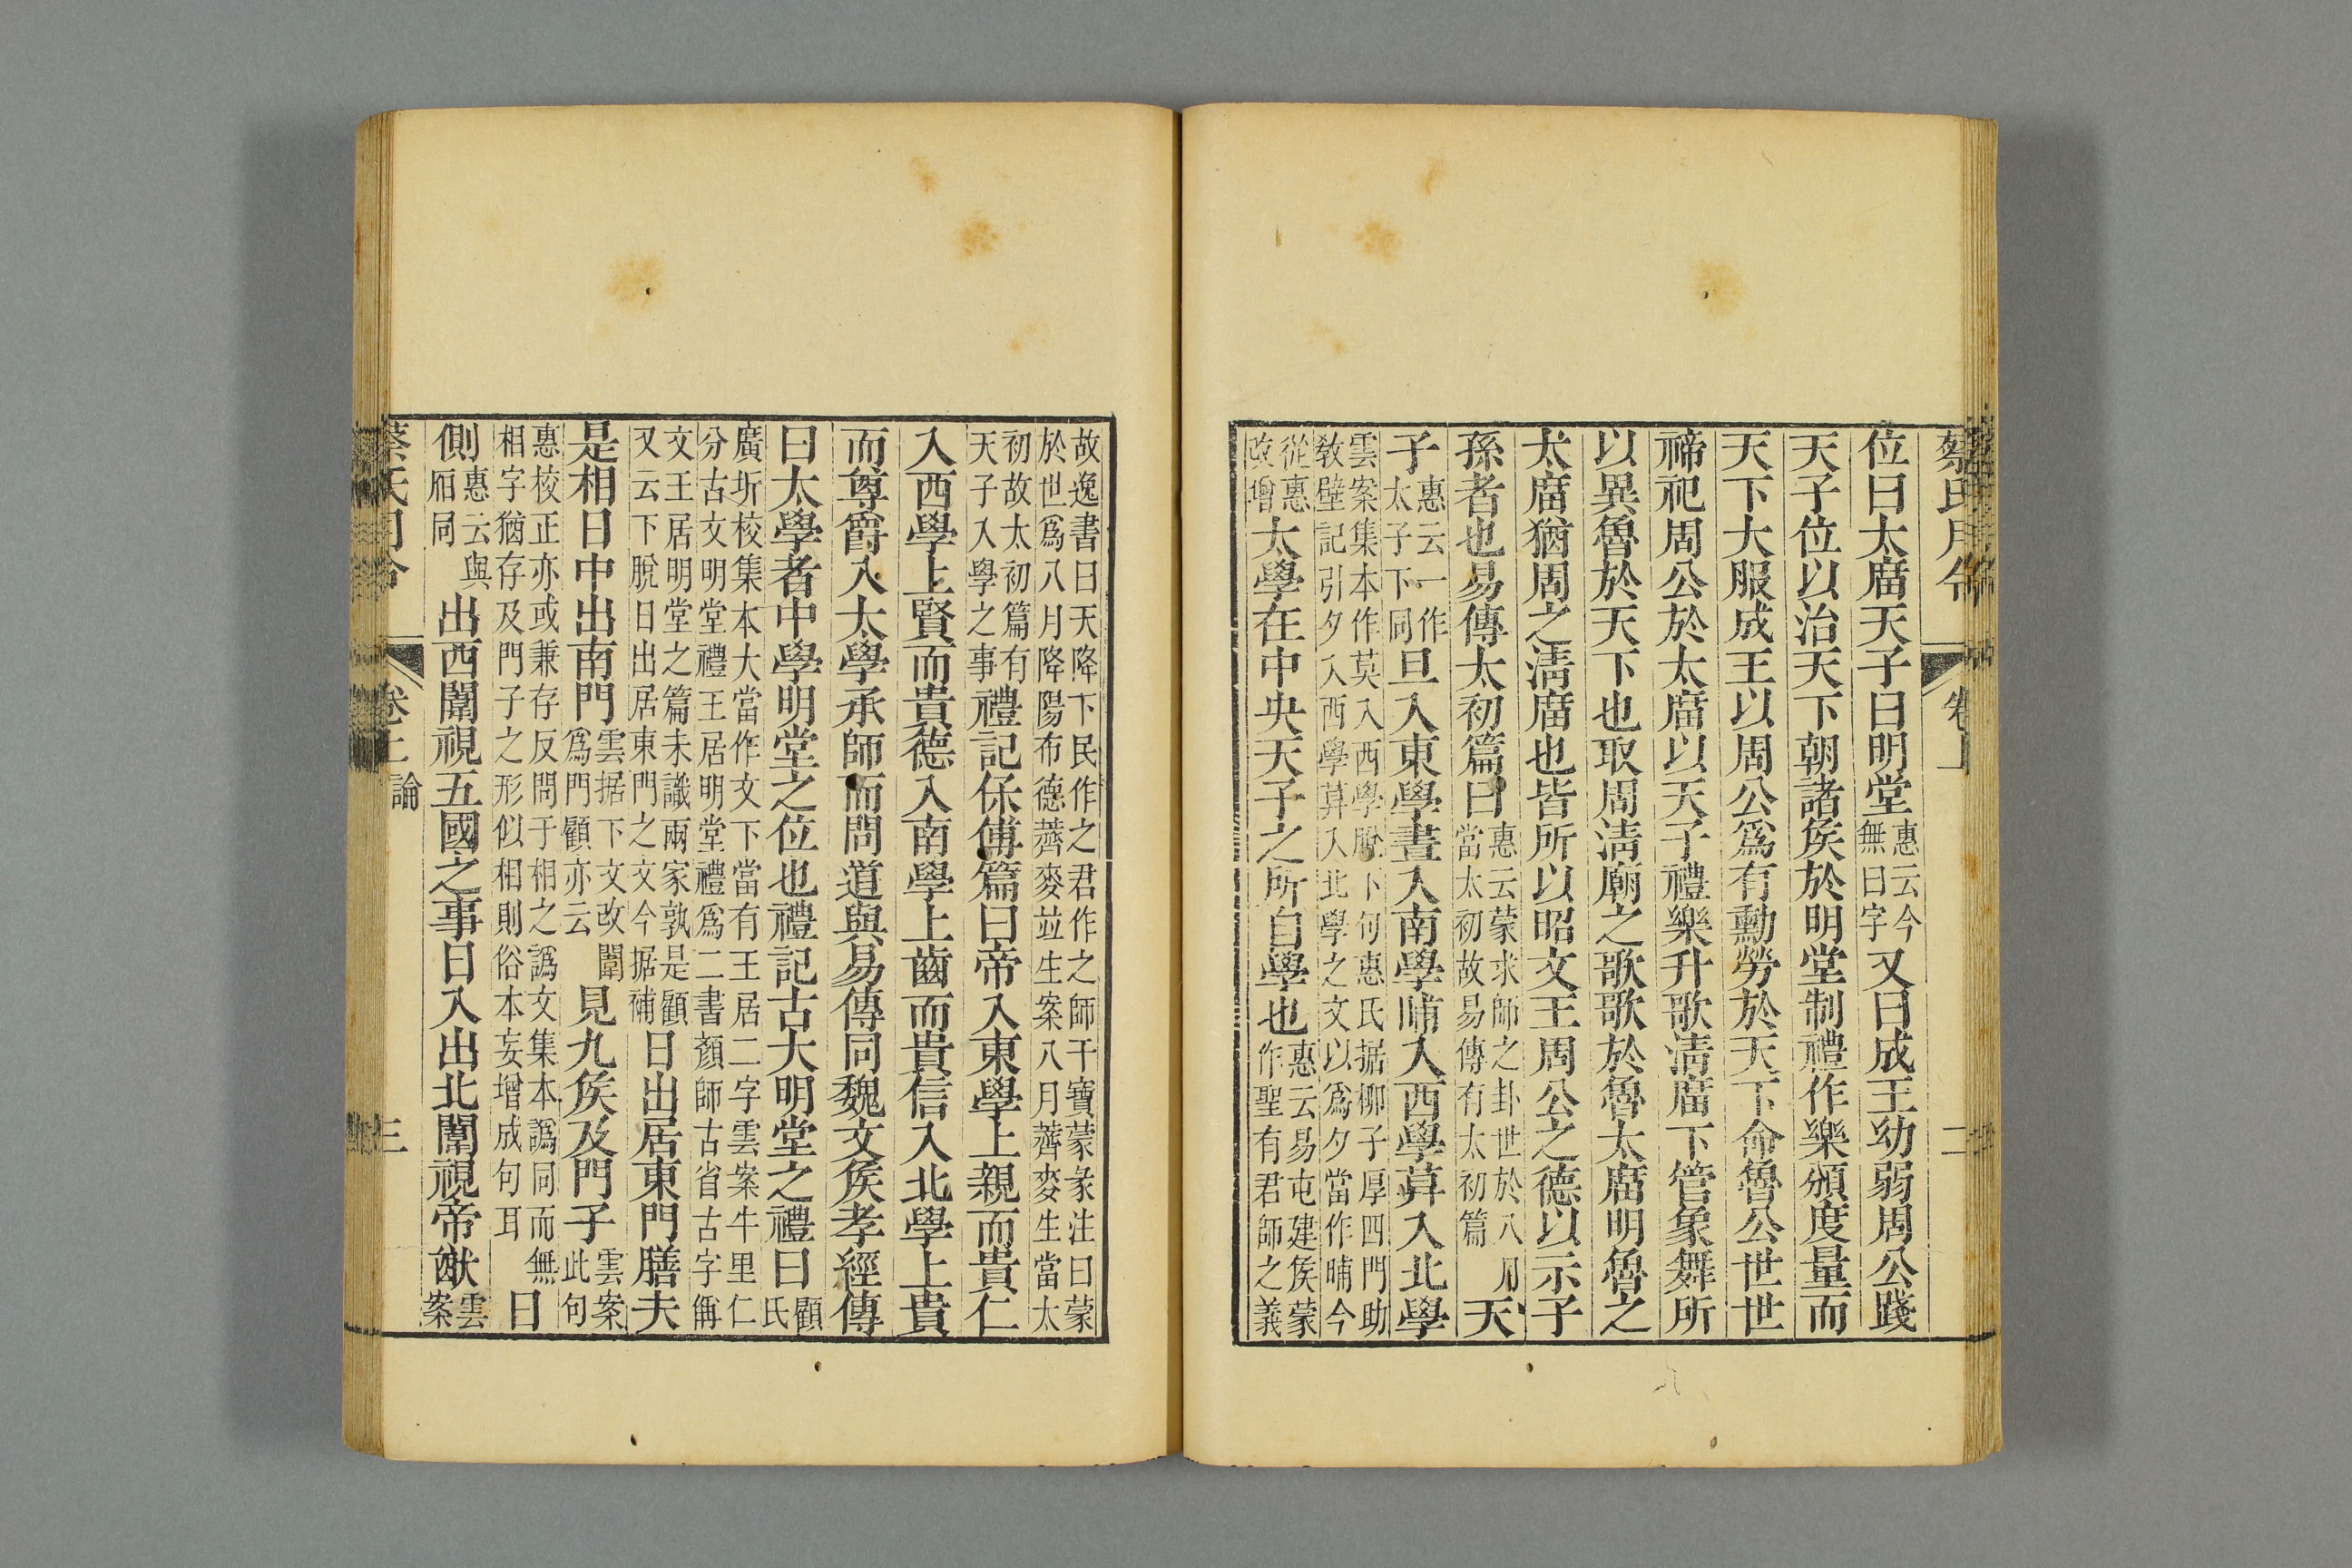 蔡氏月令 卷上 二
位曰太廟天子曰明堂惠云今無曰字又曰成王幼弱周公踐
天子位以治天下朝諸矦於明堂制禮作樂頒度量而
天下大服成王以周公爲有勳勞於天下命魯公世世
禘祀周公於太廟以天子禮樂升歌淸廟下管象舞所
以異魯於天下也取周淸廟之歌歌於魯太廟明魯之
太廟猶周之淸廟也皆所以昭文王周公之德以示子
孫者也易傳太初篇曰惠云蒙求師之卦世於八月當太初故易傳有太初篇天
子惠云一作太子下同旦入東學晝入南學晡入西學莫入北學
雲案集本作莫入西學脫下句惠氏据柳子厚四門助敎壁記引夕入西學莫入北學之文以爲夕當作晡今
從惠改增太學在中央天子之所自學也惠云易屯建矦蒙作聖有君師之義
故逸書曰天降下民作之君作之師干寶蒙彖注曰蒙於世爲八月降陽布德薺麥並生案八月薺麥生當太
初故太初篇有天子入學之事禮記保傅篇曰帝入東學上親而貴仁
入西學上賢而貴德入南學上齒而貴信入北學上貴
而尊爵入太學承師而問道與易傳同魏文矦孝經傳
曰太學者中學明堂之位也禮記古大明堂之禮曰顧氏
廣圻校集本大當作文下當有王居二字雲案牛里仁分古文明堂禮王居明堂禮爲二書顏師古省古字稱
文王居明堂之篇未識兩家孰是顧又云下脫日出居東門之文今据補日出居東門膳夫
是相日中出南門雲据下文改闈爲門顧亦云見九矦及門子雲案此句
惠校正亦或兼存反問于相之譌文集本譌同而無相字猶存及門子之形似相則俗本妄增成句耳日
側惠云與㫁同出西闈視五國之事日入出北闈視帝猷雲案
蔡氏月令 卷上 論 三